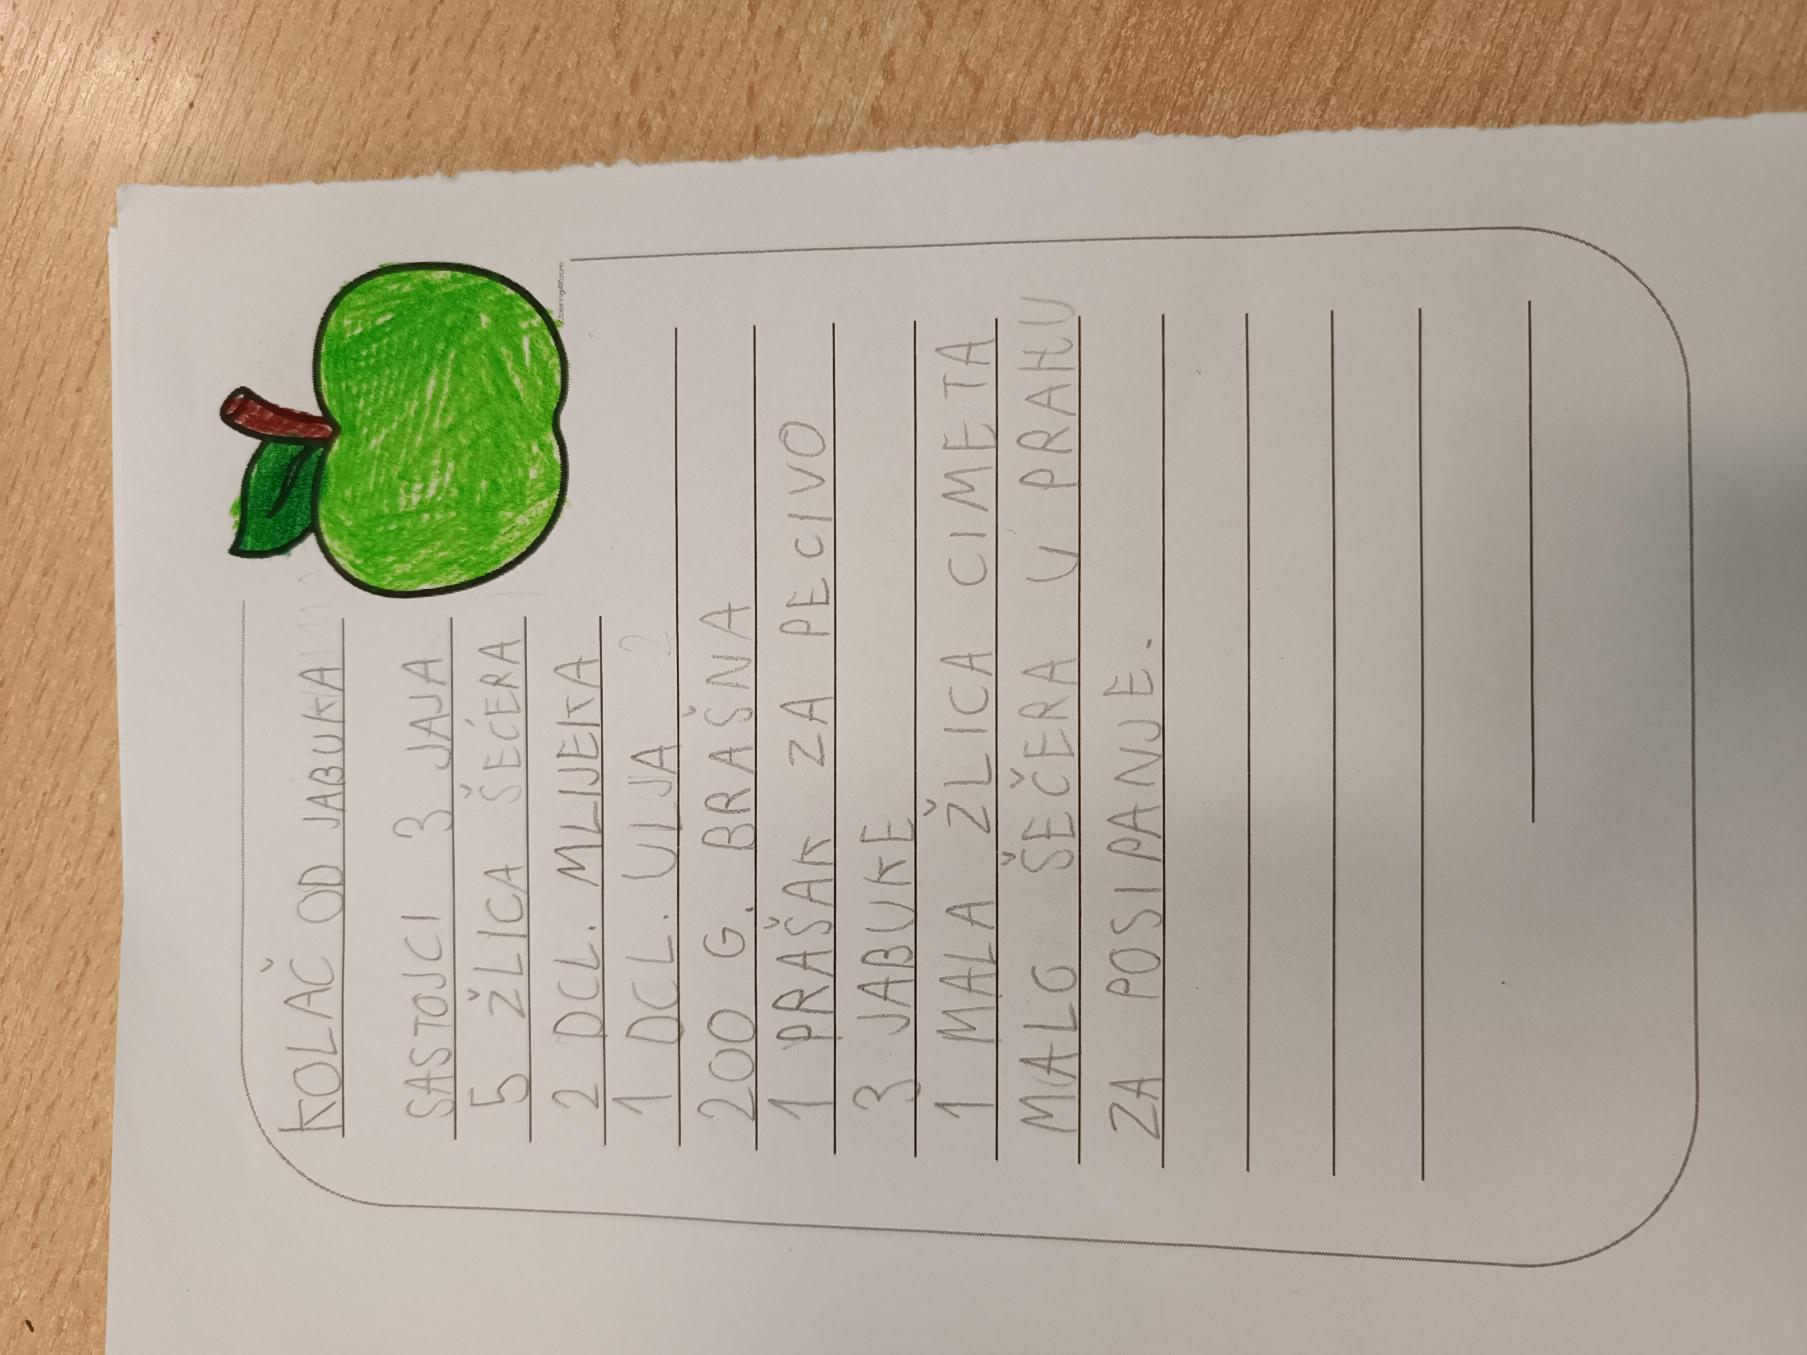 KOLAČ OD JABUKA
SASTOJCI 3 JAJA
5 ŽLICA ŠEĆERA
2 DCL. MLIJEKA
1 DCL. ULJA
200 G. BRAŠNA
1 PRAŠAK ZA PECIVO
3 JABUKE
1 MALA ŽLICA CIMETA
MALO ŠEČERA U PRAHU
ZA POSIPANJE.